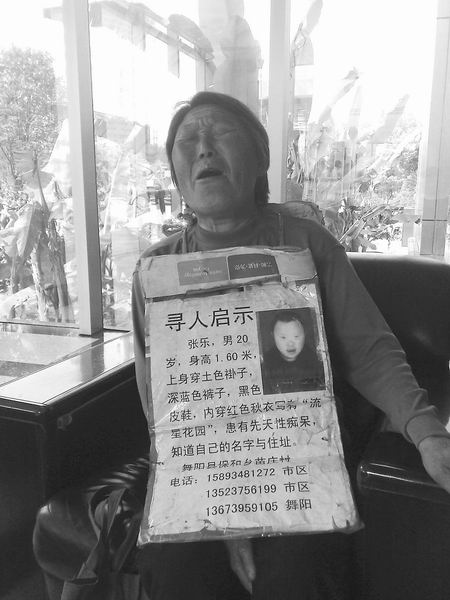 寻人启示
张乐，男20
岁，身高1.60米，
上身穿土色褂子，
深蓝色裤子，黑色
皮鞋，内穿红色秋衣写有“流
星花园”，患有先天性痴呆，
知道自己的名字与住址。
舞阳县保和乡苗庄村
电话：15893481272 市区
13523756199 市区
13673959105 舞阳